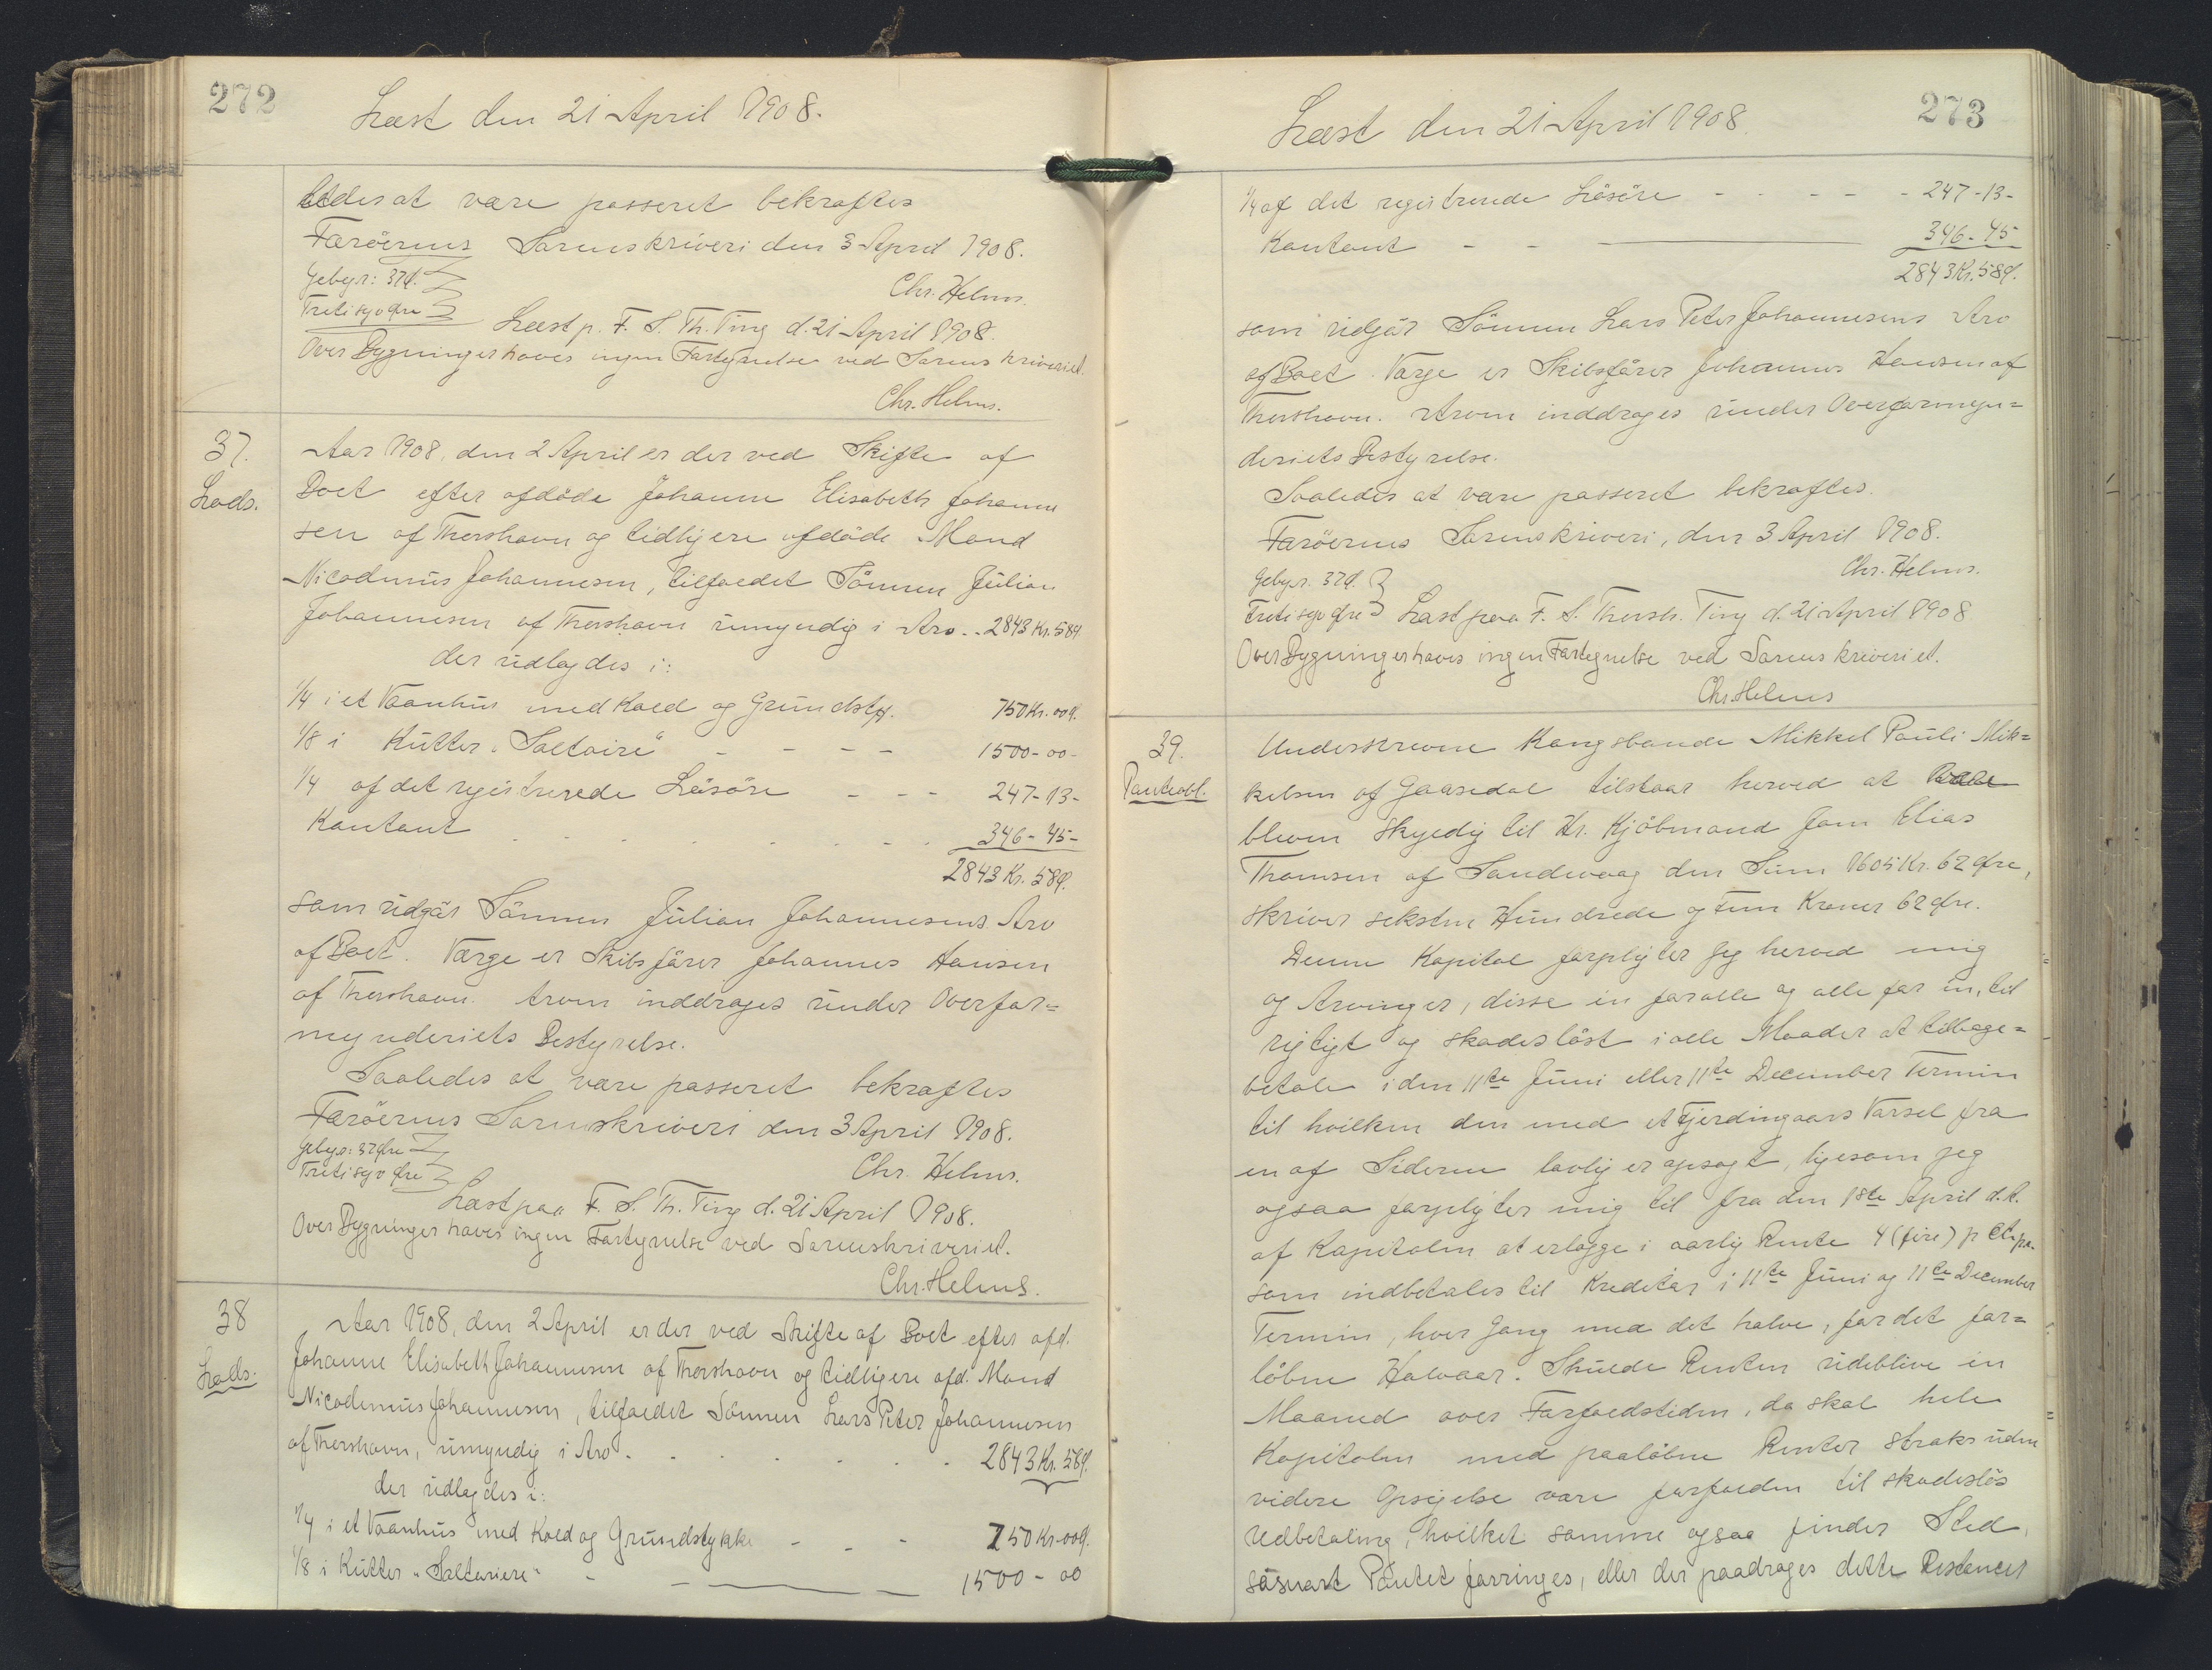 272
Læst den 21 April 1908.
ledes at være passeret bekræftes
Færöernes Sorenskriveri den 3 April 1908.
Gebyr: 37Ø.
Chr. Helms.
Tretisyv Øre
Læst p. F. S. Th. Ting d. 21 April 1908.
Over Bygninger haves ingen Fortegnelse ved Sorenskriveriet.
Chr. Helms.
37.
Lods.
Aar 1908, den 2 April er der ved Skifte af
Boet efter afdöde Johanne Elisabeth Johanne
sen af Thorshavn og tidligere afdöde Mand
Nicodemus Johannesen, tilfaldet Sönnen Julian
Johannesen af Thorshavn umyndig i Arv.. 2843 Kr. 58Ø.
der udlagdes i:
1/4 i et Vaanhus med Kald og Grundsty.
750 Kr. 00Ø.
1/8 i Kutter "Saltaire" - - - -
1500-00-
1/4 af det registrerede Lösöre - - -
247-13-
Kontant
346-45-
2843 Kr. 58Ø.
som udgör Sönnen Julian Johannesens Arv
af Boet. Værge er Skibsförer Johannes Hansen
af Thorshavn. Arven inddrages under Overfor=
mynderiets Bestyrelse.
Saaledes at være passeret bekræftes
Færöernes Sorenskriveri den 3 April 1908.
Gebyr: 37 Øre
Tretisyv Øre
Chr. Helms.
Læst paa F. S. Th. Ting d. 21 April 1908.
Over Bygninger haves ingen Fortegnelse ved Sorenskriveriet.
Chr. Helms.
38
Lods.
Aar 1908, den 2 April er der ved Skifte af Boet efter afd.
Johanne Elisabeth Johannesen af Thorshavn og tidligere afd. Mand
Nicodemus Johannesen, tilfaldet Sönnen Lars Peter Johannesen
af Thorshavn, umyndig i Arv.
2843 Kr. 58Ø.
der udlagdes i:
1/4 i et Vaanhus med Kald og Grundstykke - - -
750 Kr. 00Ø.
1/8 i Kutter "Saltariere" -
1500-00
273
Læst den 21 April 1908.
1/4 af det registrerede Lösöre - - - - -
247-13-
Kontant - -
346-45
2843 Kr. 58Ø.
som udgör Sönnen Lars Peter Johannesens Arv
af Boet. Værge er Skibsförer Johannes Hansen af
Thorshavn. Arven inddrages under Overformyn=
deriets Bestyrelse.
Saaledes at være passeret bekræftes.
Færöernes Sorenskriveri, den 3 April 1908.
Gebyr. 37Ø.
Chr. Helms.
Tretisyv Øre Læst paa F. S. Thorsh. Ting d. 21 April 1908
Over Bygninger haves ingen Fortegnelse ved Sorenskriveriet.
Chr. Helms
39.
Panteobl.
Underskrevne Kongsbonde Mikkel Pauli Mik=
kelsen af Gaasedal tilstaar herved at være
bleven skyldig til Hr. Kjöbmand Jom Elias
Thomsen af Sandevaag den Sum 1605 Kr. 62 Øre,
skriver seksten Hundrede og fem Kroner 62 Øre.
Denne Kapital forpligter jeg herved mig
og Arvinger, disse en for alle og alle for en, til
rigtigt og skadeslöst i alle Maader at tilbage=
betale i den 11te Juni eller 11te December Termin
til hvilken den med et Fjerdingaars Varsel fra
en af Siderne lovlig er opsagt, ligesom jeg
ogsaa forpligter mig til fra den 18te April d.A.
af Kapitalen at erlægge i aarlig Rente 4 (fire) p Ct. pa.
som indbetales til Kreditor i 11te Juni og 11te December
Termin, hver Gang med det halve, for det for=
löbne Halvaar. Skulde Renten udeblive en
Maaned over Forfaldstiden, da skal hele
Kapitalen med paalöbne Renter straks uden
videre Opsigelse være forfalden til skadeslös
Udbetaling, hvilket samme ogsaa finder Sted,
såsnart Pantet forringes, eller der paadrages dette Restancer